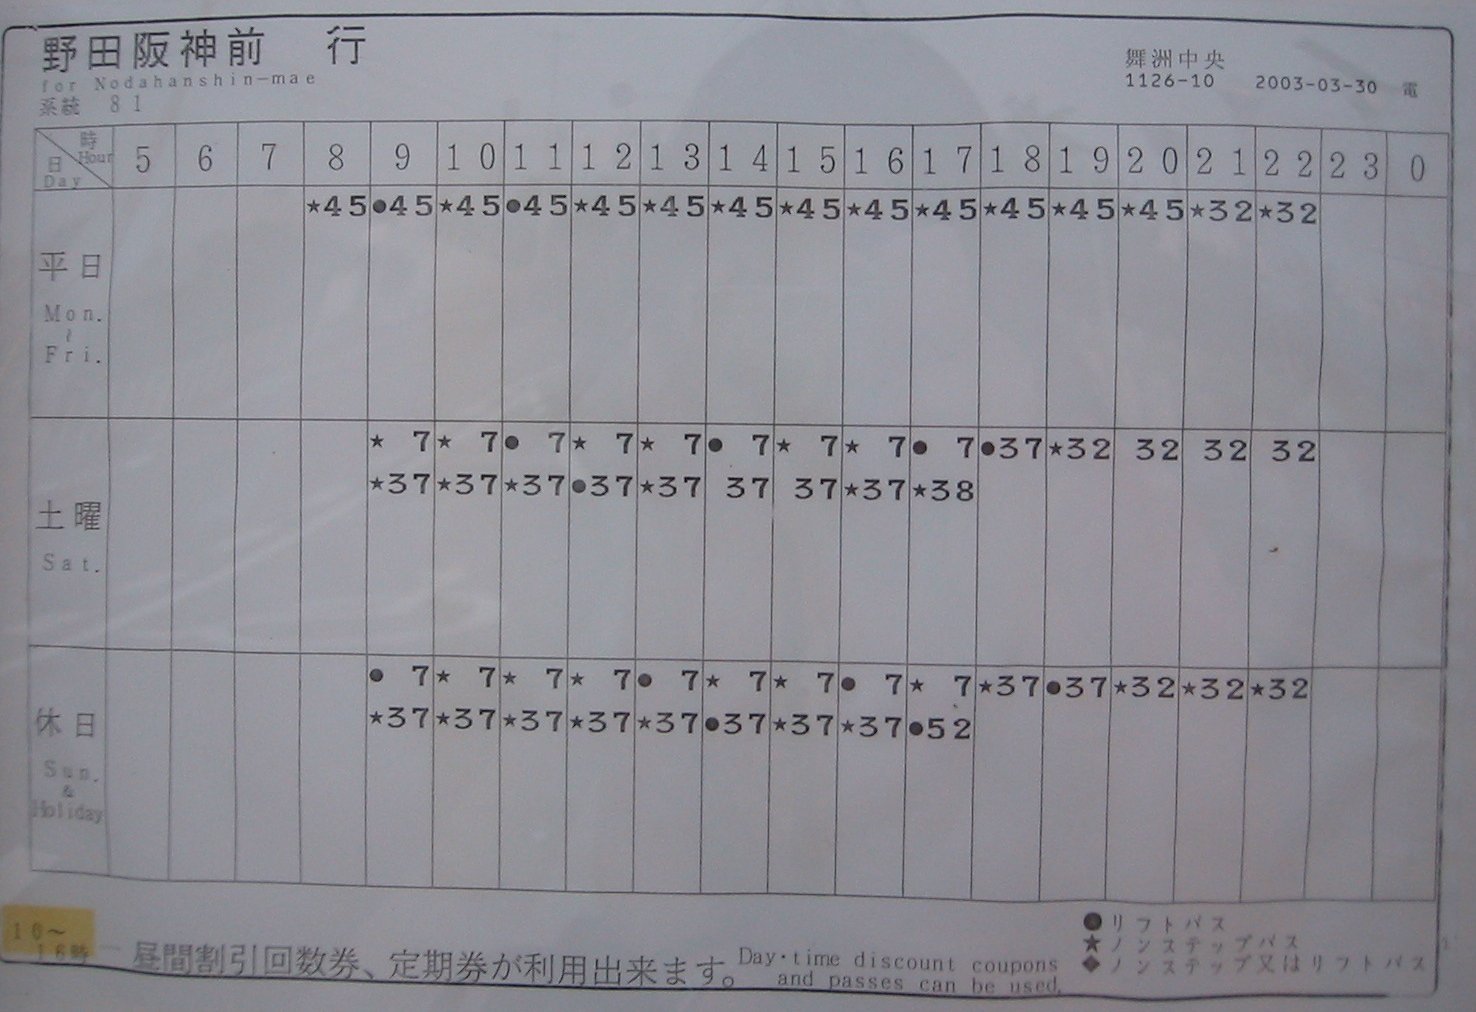 野田阪神前 行
for Nodahanshin-mae
系統 81
舞洲中央
1126-10 2003-03-30 電
時 Hour
日 Day
5 6 7 8 9 10 11 12 13 14 15 16 17 18 19 20 21 22 23 0
平日
Mon.
~
Fri.
★45 ●45 ★45 ●45 ★45 ★45 ★45 ★45 ★45 ★45 ★45 ★45 ★45 ★32 ★32
土曜
Sat.
★ 7 ★ 7 ● 7 ★ 7 ★ 7 ● 7 ★ 7 ★ 7 ● 7 ●37 ★32 32 32 32
★37 ★37 ★37 ●37 ★37 37 37 ★37 ★38
休日
Sun.
&
Holiday
● 7 ★ 7 ★ 7 ★ 7 ● 7 ★ 7 ★ 7 ● 7 ★ 7 ★37 ●37 ★32 ★32 ★32
★37 ★37 ★37 ★37 ★37 ●37 ★37 ★37 ●52
10～
16時
昼間割引回数券、定期券が利用出来ます。
Day・time discount coupons
and passes can be used.
●リフトバス
★ノンステップバス
◆ノンステップ又はリフトバス